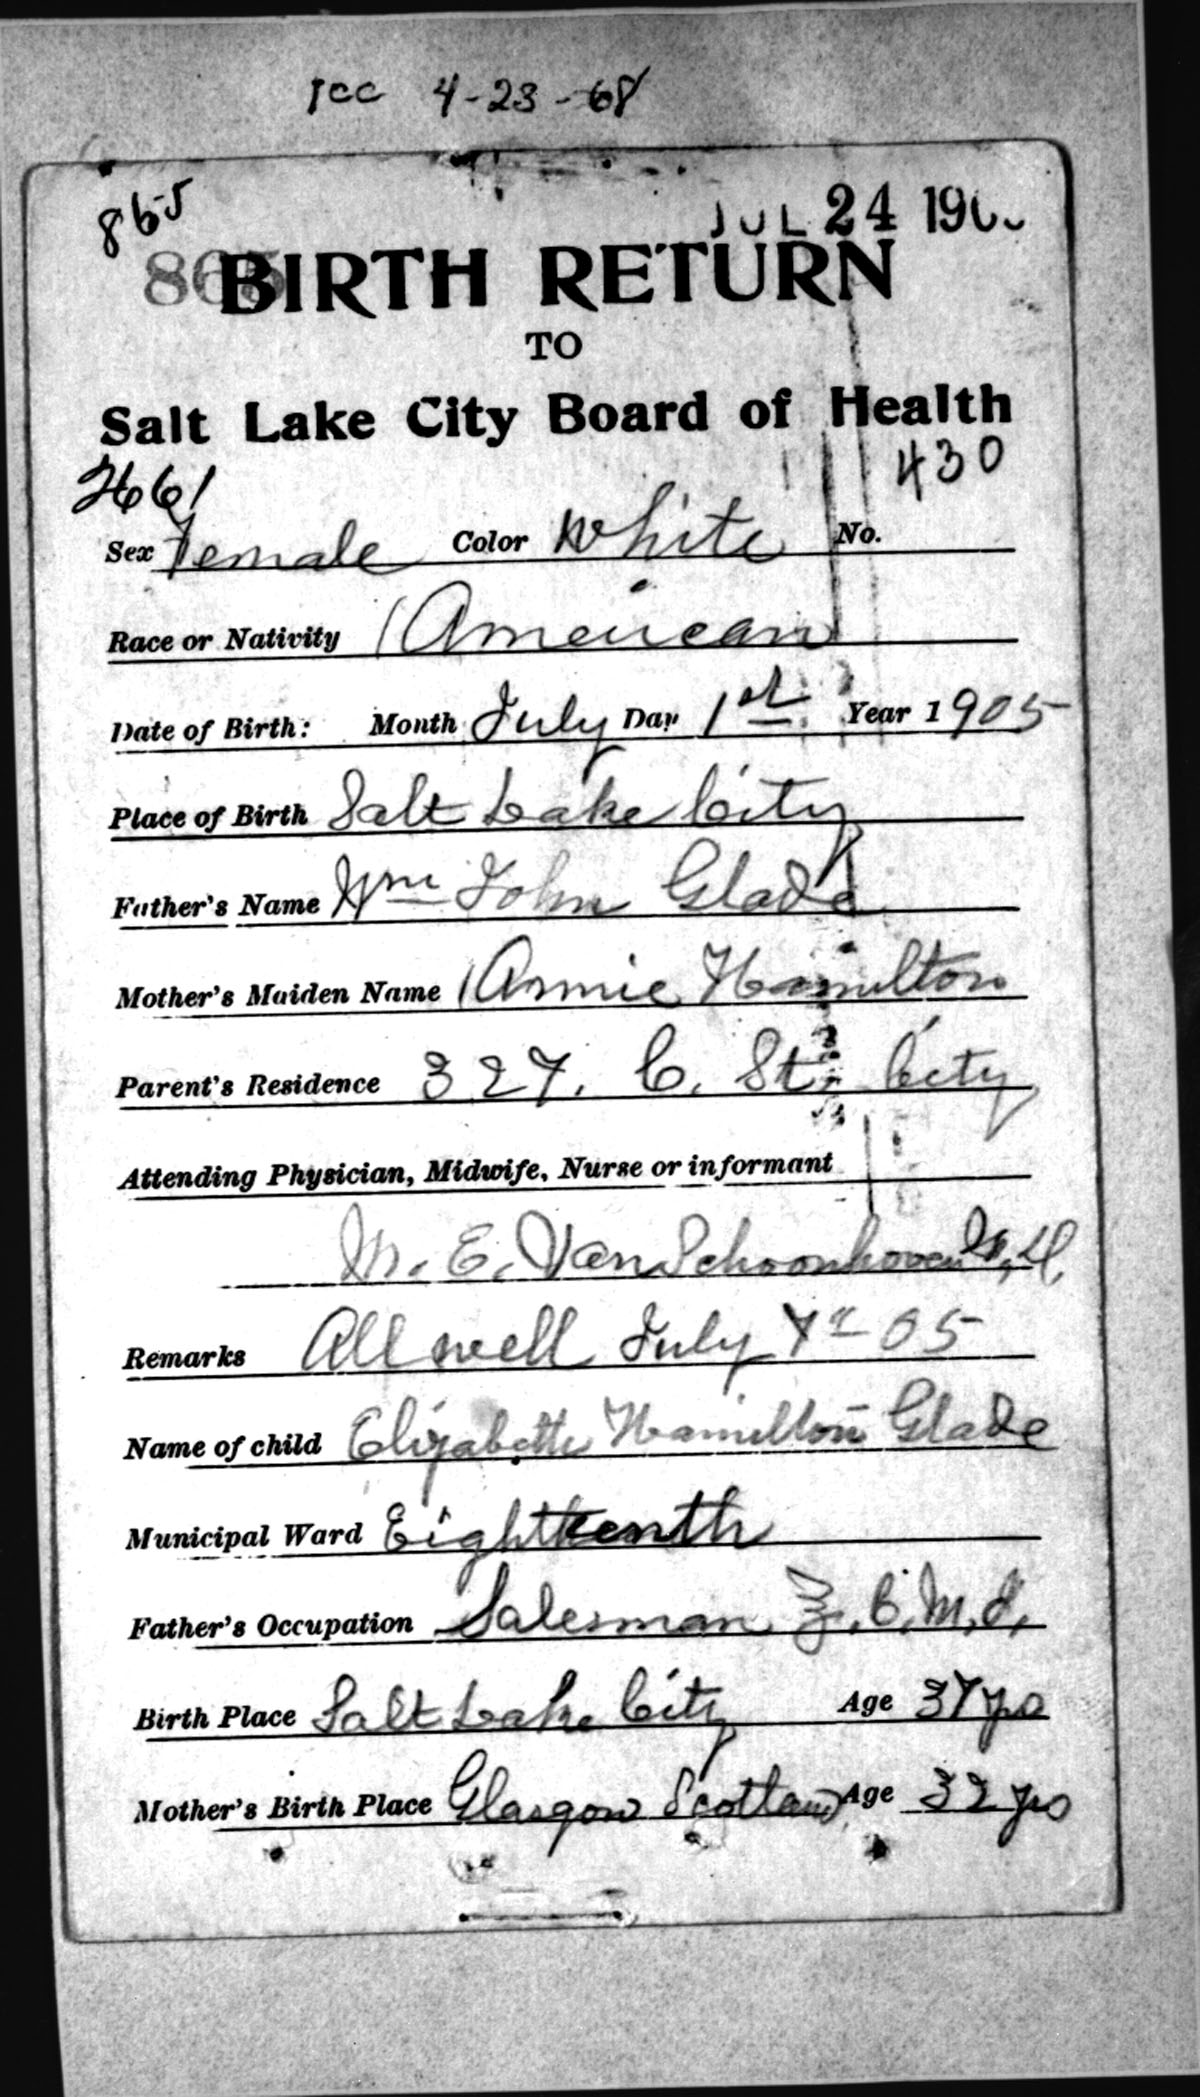 ICC 4-23-68
865
JUL 24 190
865 BIRTH RETURN
TO
Salt Lake City Board of Health
430
Sex Female Color White No.
Race or Nativity American
Date of Birth: Month July Day 1st Year 1905
Place of Birth Salt Lake City
Father's Name Wm John Glade
Mother's Maiden Name Annie Hamilton
Parent's Residence 327. C. St. City
Attending Physician, Midwife, Nurse or informant
M. E. Van Schoonhoven M.D.
Remarks All well July 7th 05
Name of child Elizabeth Hamilton Glade
Municipal Ward Eighteenth
Father's Occupation Salesman Z.C.M.I.
Birth Place Salt Lake City Age 37 yrs
Mother's Birth Place Glasgow Scotland Age 32 yrs